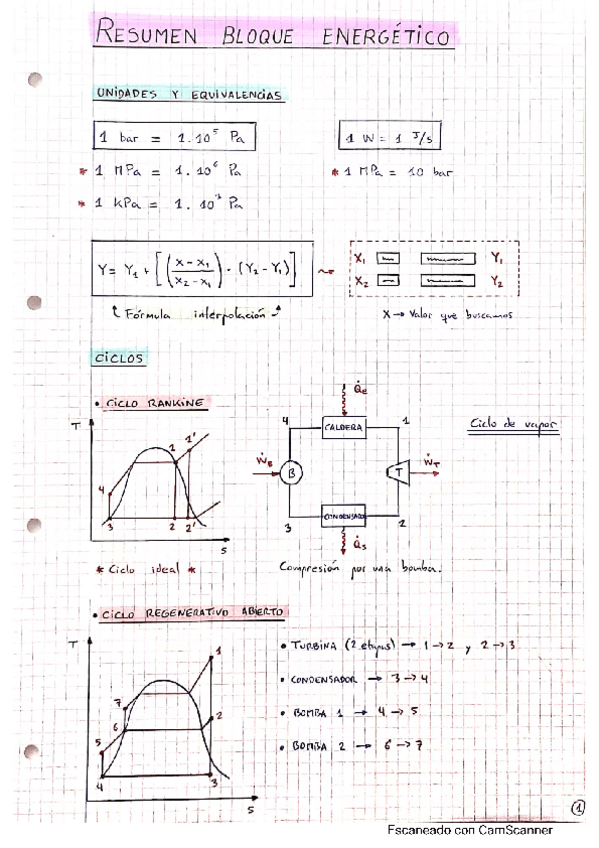 RESUMEN BLOQUE ENERGÉTICO
UNIDADES Y EQUIVALENCIAS
1 bar = 1.10⁵ Pa
1 W = 1 J/s
* 1 MPa = 1.10⁶ Pa
* 1 MPa = 10 bar
* 1 kPa = 1.10³ Pa
Y = Y₁ + [(x-x₁/x₂-x₁) · (Y₂-Y₁)]
X₁ Y₁
X₂ Y₂
Fórmula interpolación
X → Valor que buscamos
CICLOS
• CICLO RANKINE
Ciclo de vapor
T
1 1'
4
3 2 2'
S
Q̇e
4 CALDERA 1
ẆB B T ẆT
3 CONDENSADOR 2
Q̇s
* Ciclo ideal *
Compresión por una bomba.
• CICLO REGENERATIVO ABIERTO
T
1
7
2
6
5
4 3
S
• TURBINA (2 etapas) → 1→2 y 2→3
• CONDENSADOR → 3→4
• BOMBA 1 → 4→5
• BOMBA 2 → 6→7
1
Escaneado con CamScanner